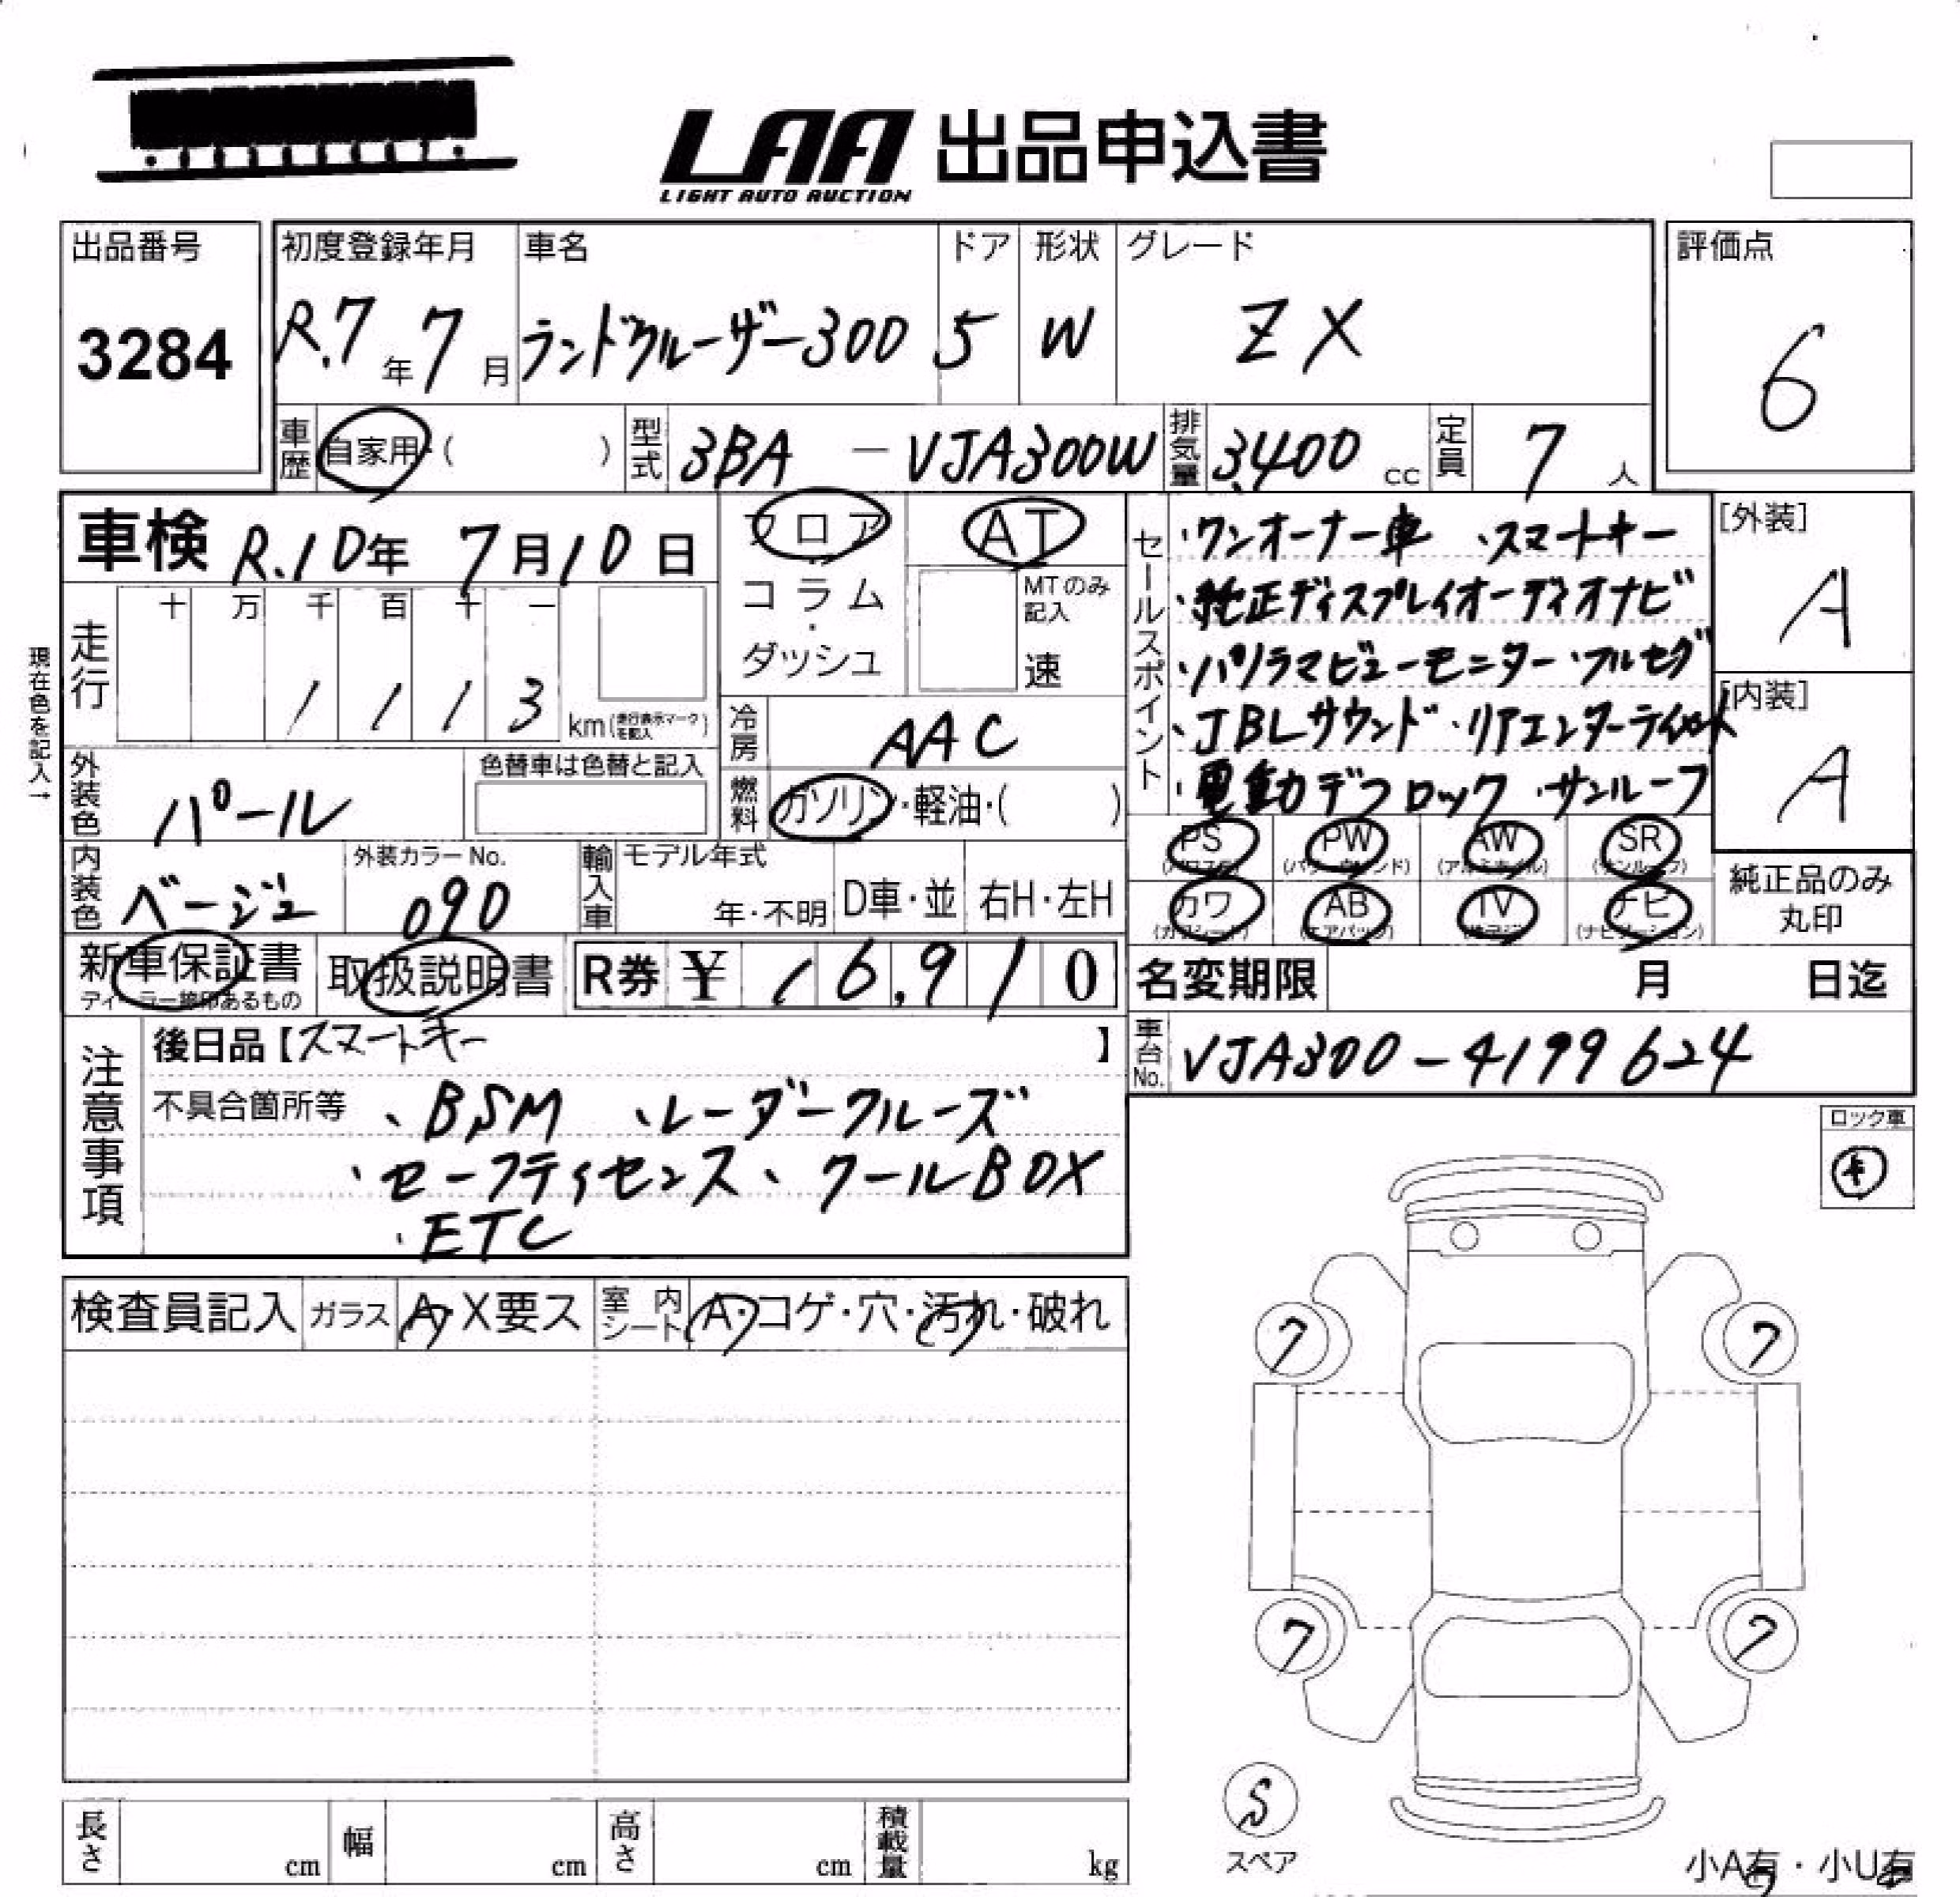 LAA 出品申込書
LIGHT AUTO AUCTION
出品番号 初度登録年月 車名 ドア 形状 グレード 評価点
3284 R.7年7月 ランドクルーザー300 5 W ZX 6
車歴 自家用・( ) 型式 3BA-VJA300W 排気量 3,400 cc 定員 7人
車検 R.10年7月10日
フロア・コラム・ダッシュ
AT
MTのみ記入
速
セールスポイント
・ワンオーナー車 ・スマートキー
・純正ディスプレイオーディオナビ
・パノラマビューモニター・フルセグ
・JBLサウンド・リアエンターテイメント
・電動デフロック・サンルーフ
[外装]
A
[内装]
A
現在色を記入→
走行 十 万 千 百 十 一
1 1 1 3 km(走行表示マークを記入)
冷房 AAC
外装色 パール 色替車は色替と記入
燃料 ガソリン・軽油・( )
PS (パワステ) PW (パワーウインド) AW (アルミホイル) SR (サンルーフ)
カワ (カワシート) AB (エアバッグ) TV (テレビ) ナビ (ナビゲーション)
純正品のみ
丸印
内装色 ベージュ 外装カラーNo. 090 輸入車 モデル年式 年・不明 D車・並 右H・左H
新車保証書 ディーラー捺印あるもの 取扱説明書 R券 ¥ 16,910
名変期限 月 日迄
車台No. VJA300-4199624
注意事項
後日品【スマートキー 】
不具合箇所等 、BSM 、レーダークルーズ
・セーフティセンス、クールBOX
・ETC
ロック車
キ
検査員記入 ガラス A・X要ス 室内シート A・コゲ・穴・汚れ・破れ
7 7
7 7
S
スペア
長さ cm 幅 cm 高さ cm 積載量 kg
小A有・小U有